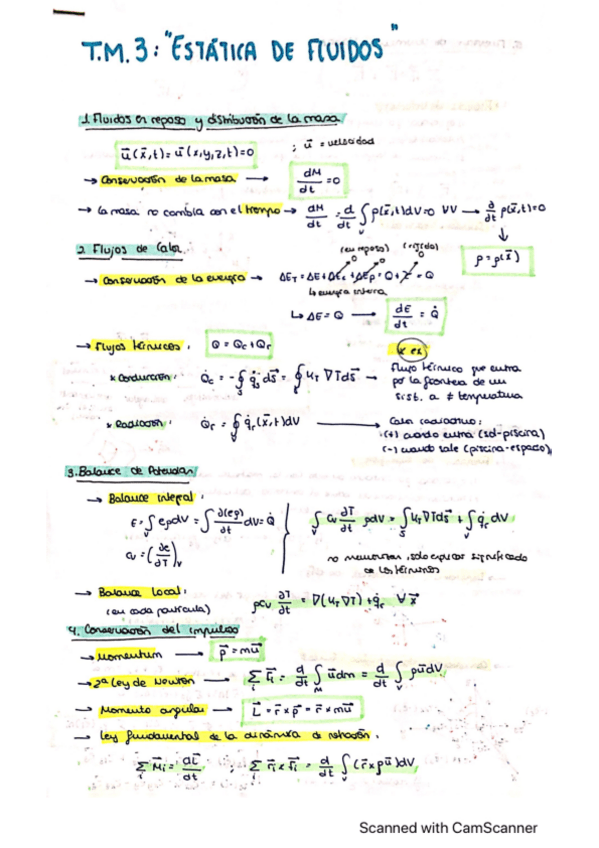 T.M.3: "ESTÁTICA DE FLUIDOS"
1. Fluidos en reposo y distribución de la masa
u⃗(x⃗,t) = u⃗(x,y,z,t) = 0 ; u⃗ = velocidad
→ Conservación de la masa → dM/dt = 0
→ la masa no cambia con el tiempo → dM/dt = d/dt ∫_V ρ(x⃗,t)dV = 0 ∀V → ∂/∂t ρ(x⃗,t) = 0
↓
ρ = ρ(x⃗)
2. Flujos de Calor
(en reposo) (rígido)
→ Conservación de la energía → ΔE_T = ΔE + ΔE_c + ΔE_p = Q + = Q
↳ energía interna
↳ ΔE = Q → dE/dt = Q̇
→ Flujos térmicos: Q = Q_c + Q_r
* Conducción: Q̇_c = -∮_S q⃗_s ds⃗ = ∮_S κ_T ∇T ds⃗ → flujo térmico que entra
por la frontera de un
sist. a ≠ temperatura
* Radiación: Q̇_r = ∮_V q̇_r(x⃗,t)dV → Calor radiactivo:
(+) cuando entra (sol-piscina)
(-) cuando sale (piscina-espacio)
3. Balance de Potencian
→ Balance integral:
E = ∫_V eρdV = ∫_V ∂(eρ)/∂t dV = Q̇
∫_V cv ∂T/∂t ρdV = ∫_S κ_T ∇T ds⃗ + ∫_V q̇_r dV
cv = (∂e/∂T)_V
no memorizar, solo explicar significado
de los términos
→ Balance Local:
(en cada partícula)
ρcv ∂T/∂t = ∇(κ_T ∇T) + q̇_r ∀x⃗
4. Conservación del impulso
→ Momentum → p⃗ = mu⃗
→ 2ª Ley de Newton → Σ_i F⃗_i = d/dt ∫_M u⃗dm = d/dt ∫_V ρu⃗dV
→ Momento angular → L⃗ = r⃗ × p⃗ = r⃗ × mu⃗
→ Ley fundamental de la dinámica de rotación:
Σ_i M⃗_i = dL⃗/dt ; Σ_i r⃗_i × F⃗_i = d/dt ∫_V (r⃗ × ρu⃗)dV
Scanned with CamScanner